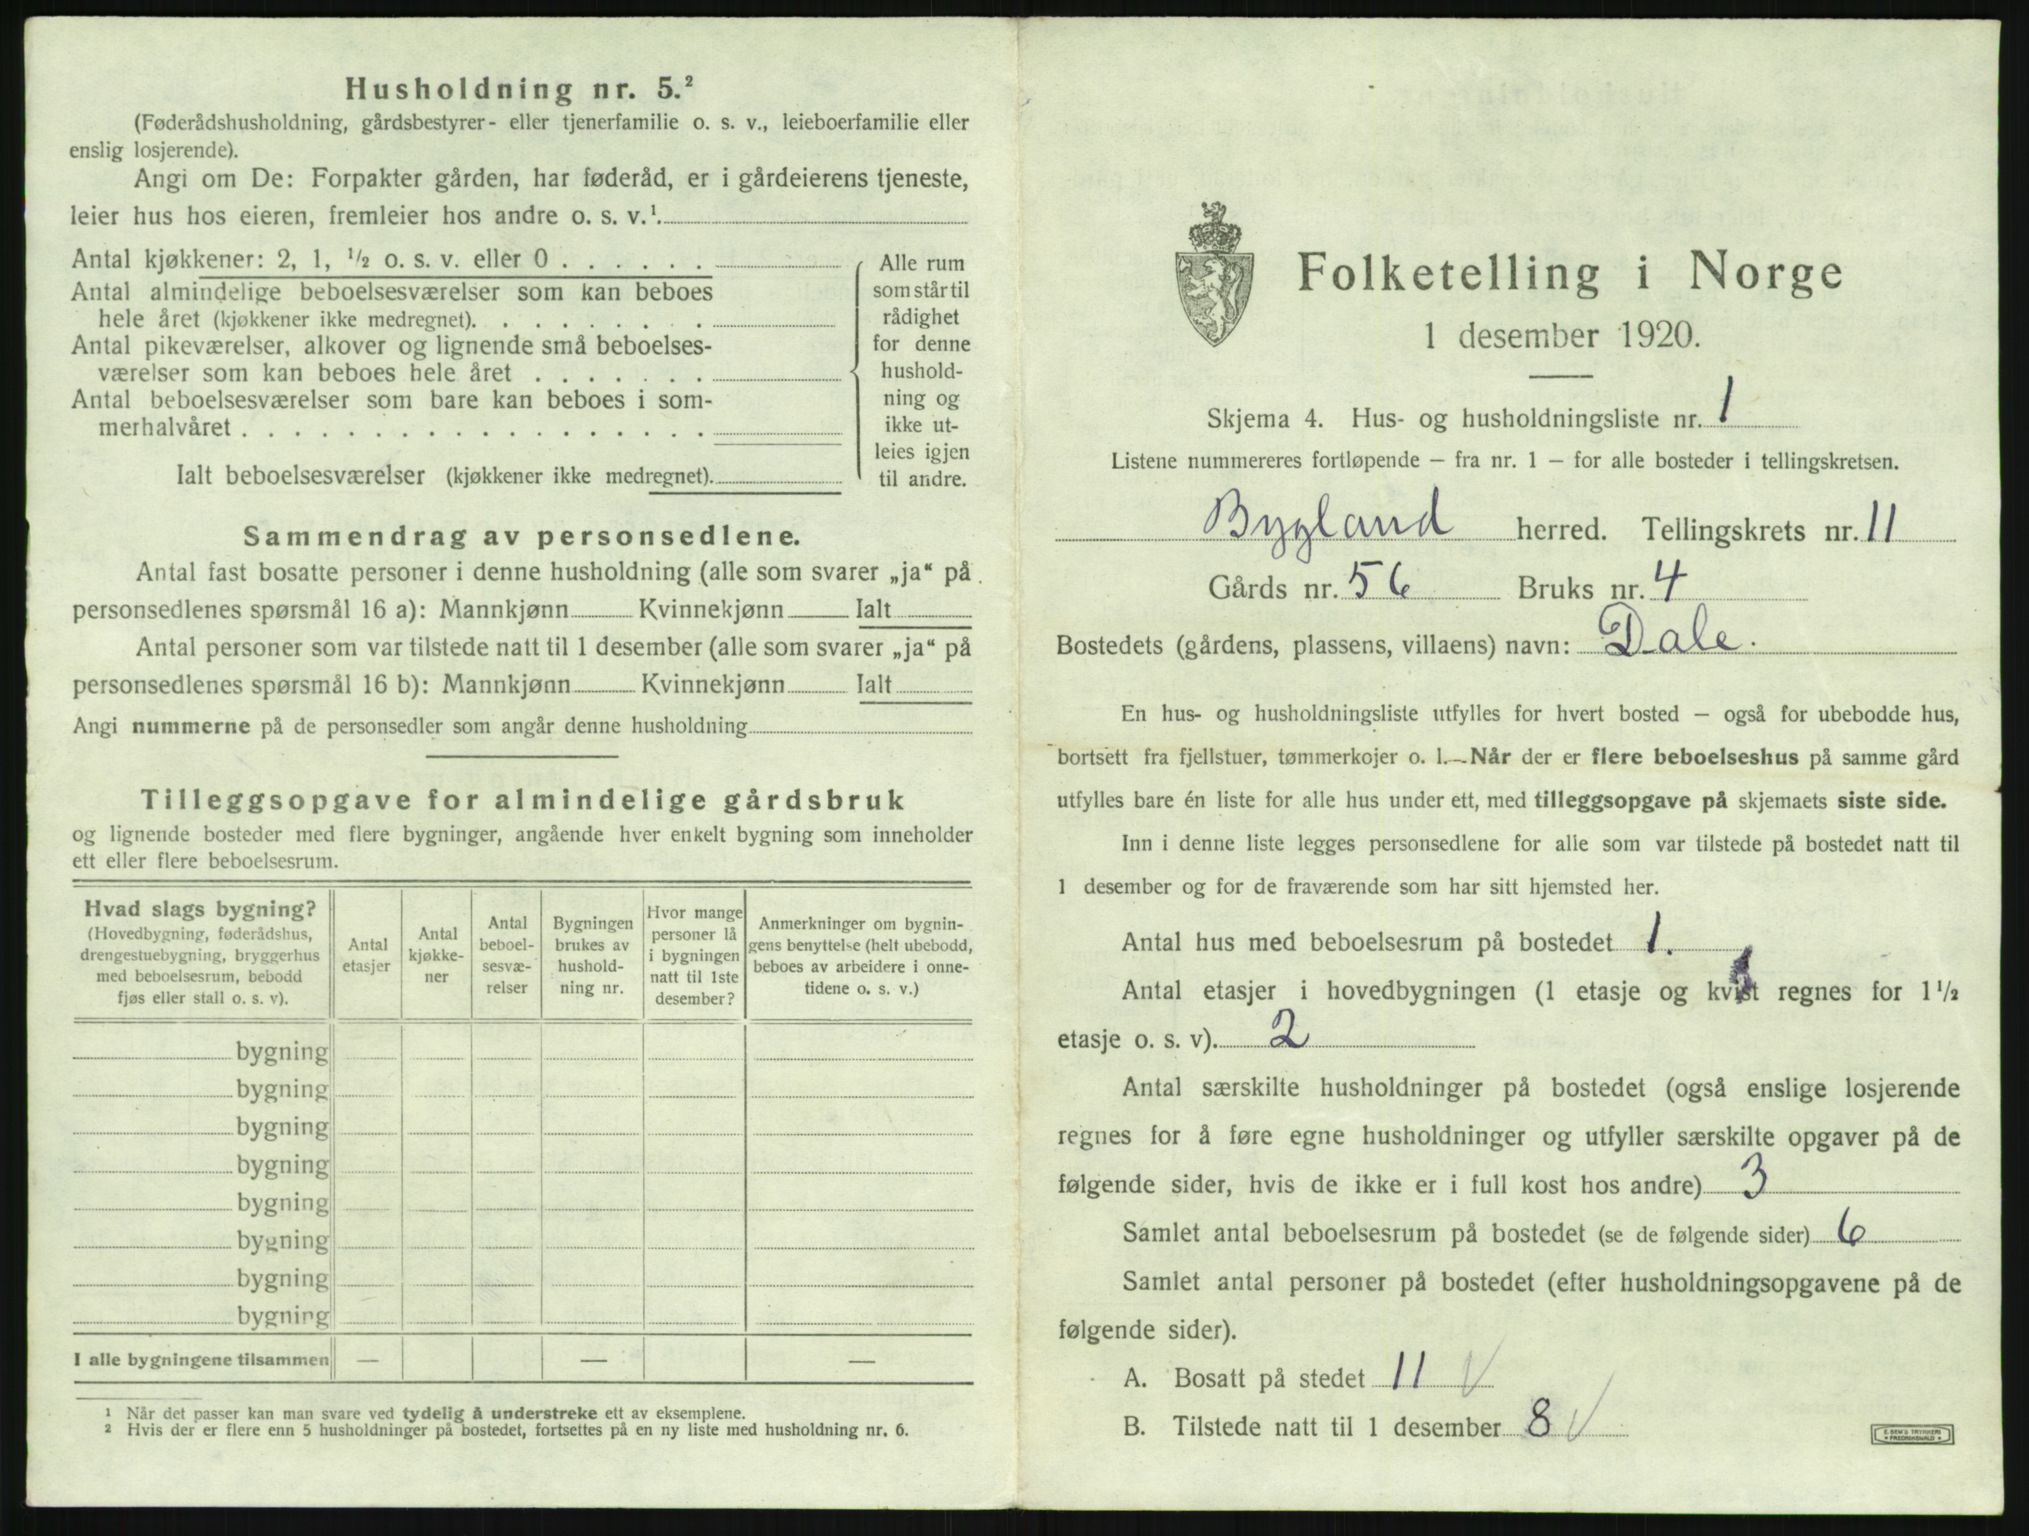 Husholdning nr. 5.²
(Føderådshusholdning, gårdsbestyrer- eller tjenerfamilie o. s. v., leieboerfamilie eller
enslig losjerende).
Angi om De: Forpakter gården, har føderåd, er i gårdeierens tjeneste,
leier hus hos eieren, fremleier hos andre o. s. v.¹.
Antal kjøkkener: 2, 1, ½ o. s. v. eller 0 . . . . . .
Antal almindelige beboelsesværelser som kan beboes
hele året (kjøkkener ikke medregnet). . . . . . . . .
Antal pikeværelser, alkover og lignende små beboelses-
værelser som kan beboes hele året . . . . . . .
Antal beboelsesværelser som bare kan beboes i som-
merhalvåret . . . . . . . . . . . . . . . . . .
Ialt beboelsesværelser (kjøkkener ikke medregnet).
Alle rum
som står til
rådighet
for denne
hushold-
ning og
ikke ut-
leies igjen
til andre.
Sammendrag av personsedlene.
Antal fast bosatte personer i denne husholdning (alle som svarer „ja“ på
personsedlenes spørsmål 16 a): Mannkjønn Kvinnekjønn Ialt
Antal personer som var tilstede natt til 1 desember (alle som svarer „ja“ på
personsedlenes spørsmål 16 b): Mannkjønn Kvinnekjønn Ialt
Angi nummerne på de personsedler som angår denne husholdning
Tilleggsopgave for almindelige gårdsbruk
og lignende bosteder med flere bygninger, angående hver enkelt bygning som inneholder
ett eller flere beboelsesrum.
Hvad slags bygning?
(Hovedbygning, føderådshus,
drengestuebygning, bryggerhus
med beboelsesrum, bebodd
fjøs eller stall o. s. v).
Antal
etasjer
Antal
kjøkke-
ner
Antal
beboel-
sesvæ-
relser
Bygningen
brukes av
hushold-
ning nr.
Hvor mange
personer lå
i bygningen
natt til 1ste
desember?
Anmerkninger om bygnin-
gens benyttelse (helt ubebodd,
beboes av arbeidere i onne-
tidene o. s. v.)
bygning
bygning
bygning
bygning
bygning
bygning
bygning
bygning
I alle bygningene tilsammen — — —
¹ Når det passer kan man svare ved tydelig å understreke ett av eksemplene.
² Hvis der er flere enn 5 husholdninger på bostedet, fortsettes på en ny liste med husholdning nr. 6.
Folketelling i Norge
1 desember 1920.
Skjema 4. Hus- og husholdningsliste nr. 1
Listene nummereres fortløpende – fra nr. 1 – for alle bosteder i tellingskretsen.
Bygland herred. Tellingskrets nr. 11
Gårds nr. 56 Bruks nr. 4
Bostedets (gårdens, plassens, villaens) navn: Dale.
En hus- og husholdningsliste utfylles for hvert bosted – også for ubebodde hus,
bortsett fra fjellstuer, tømmerkojer o. l.—Når der er flere beboelseshus på samme gård
utfylles bare én liste for alle hus under ett, med tilleggsopgave på skjemaets siste side.
Inn i denne liste legges personsedlene for alle som var tilstede på bostedet natt til
1 desember og for de fraværende som har sitt hjemsted her.
Antal hus med beboelsesrum på bostedet 1.
Antal etasjer i hovedbygningen (1 etasje og kvist regnes for 1½
etasje o. s. v). 2
Antal særskilte husholdninger på bostedet (også enslige losjerende
regnes for å føre egne husholdninger og utfyller særskilte opgaver på de
følgende sider, hvis de ikke er i full kost hos andre) 3
Samlet antal beboelsesrum på bostedet (se de følgende sider) 6
Samlet antal personer på bostedet (efter husholdningsopgavene på de
følgende sider).
A. Bosatt på stedet 11 √
B. Tilstede natt til 1 desember 8 √
E. SEM'S TRYKKERI
• FREDRIKSHALD •